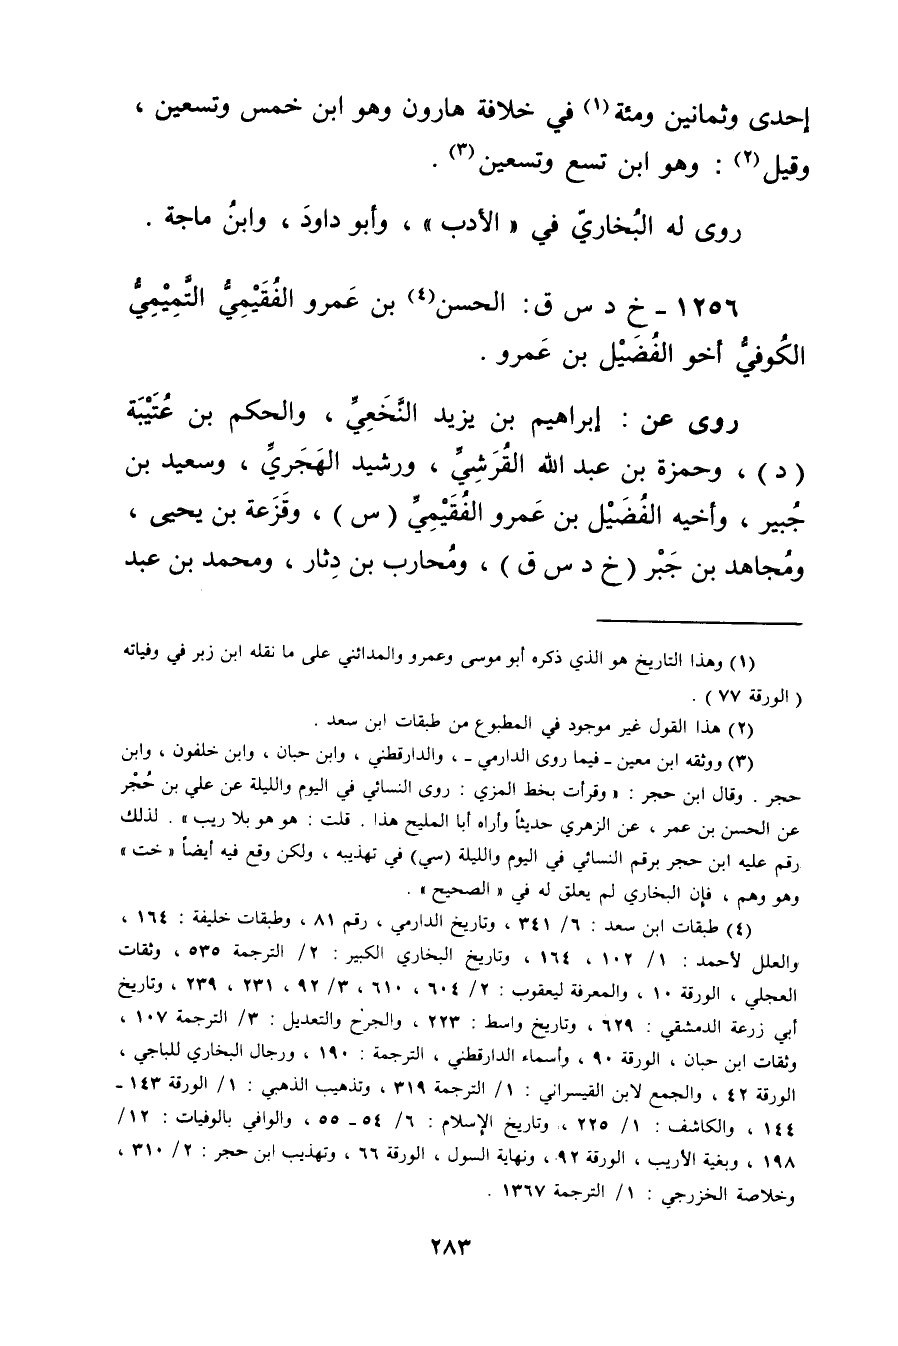 إحدى وثمانين ومئة(١) في خلافة هارون وهو ابن خمس وتسعين ،
وقيل(٢) : وهو ابن تسع وتسعين(٣) .
روى له البُخاريّ في « الأدب » ، وأبو داودَ ، وابنُ ماجة .
١٢٥٦ - خ د س ق : الحسن(٤) بن عَمرو الفُقَيْمِيُّ التَّمِيْمِيُّ
الكُوفيُّ أخو الفُضَيْل بن عَمرو .
روى عن : إبراهيم بن يزيد النَّخَعِيِّ ، والحكم بن عُتَيْبَة
( د ) ، وحمزة بن عبد الله القُرَشِيِّ ، ورشيد الهَجَريِّ ، وسعيد بن
جُبير ، وأخيه الفُضَيْل بن عَمرو الفُقَيْمِيِّ ( س ) ، وقَزَعة بن يحيى ،
ومُجاهد بن جَبْر ( خ د س ق ) ، ومُحارب بن دِثار ، ومحمد بن عبد
(١) وهذا التاريخ هو الذي ذكره أبو موسى وعمرو والمدائني على ما نقله ابن زبر في وفياته
( الورقة ٧٧ ) .
(٢) هذا القول غير موجود في المطبوع من طبقات ابن سعد .
(٣) ووثقه ابن معين - فيما روى الدارمي - ، والدارقطني ، وابن حبان ، وابن خلفون ، وابن
حجر . وقال ابن حجر : « وقرأت بخط المزي : روى النسائي في اليوم والليلة عن علي بن حُجْر
عن الحسن بن عمر ، عن الزهري حديثاً وأراه أبا المليح هذا . قلت : هو هو بلا ريب » . لذلك
رقم عليه ابن حجر برقم النسائي في اليوم والليلة (سي) في تهذيبه ، ولكن وقع فيه أيضاً « خت »
وهو وهم ، فإن البخاري لم يعلق له في « الصحيح » .
(٤) طبقات ابن سعد : ٦/ ٣٤١ ، وتاريخ الدارمي ، رقم ٨١ ، وطبقات خليفة : ١٦٤ ،
والعلل لأحمد : ١/ ١٠٢ ، ١٦٤ ، وتاريخ البخاري الكبير : ٢/ الترجمة ٥٣٥ ، وثقات
العجلي ، الورقة ١٠ ، والمعرفة ليعقوب : ٢/ ٦٠٤ ، ٦١٠ ، ٣/ ٩٢ ، ٢٣١ ، ٢٣٩ ، وتاريخ
أبي زرعة الدمشقي : ٦٢٩ ، وتاريخ واسط : ٢٢٣ ، والجرح والتعديل : ٣/ الترجمة ١٠٧ ،
وثقات ابن حبان ، الورقة ٩٠ ، وأسماء الدارقطني ، الترجمة : ١٩٠ ، ورجال البخاري للباجي ،
الورقة ٤٢ ، والجمع لابن القيسراني : ١/ الترجمة ٣١٩ ، وتذهيب الذهبي : ١/ الورقة ١٤٣ -
١٤٤ ، والكاشف : ١/ ٢٢٥ ، وتاريخ الإسلام : ٦/ ٥٤ - ٥٥ ، والوافي بالوفيات : ١٢/
١٩٨ ، وبغية الأريب ، الورقة ٩٢ ، ونهاية السول ، الورقة ٦٦ ، وتهذيب ابن حجر : ٢/ ٣١٠ ،
وخلاصة الخزرجي : ١/ الترجمة ١٣٦٧ .
٢٨٣